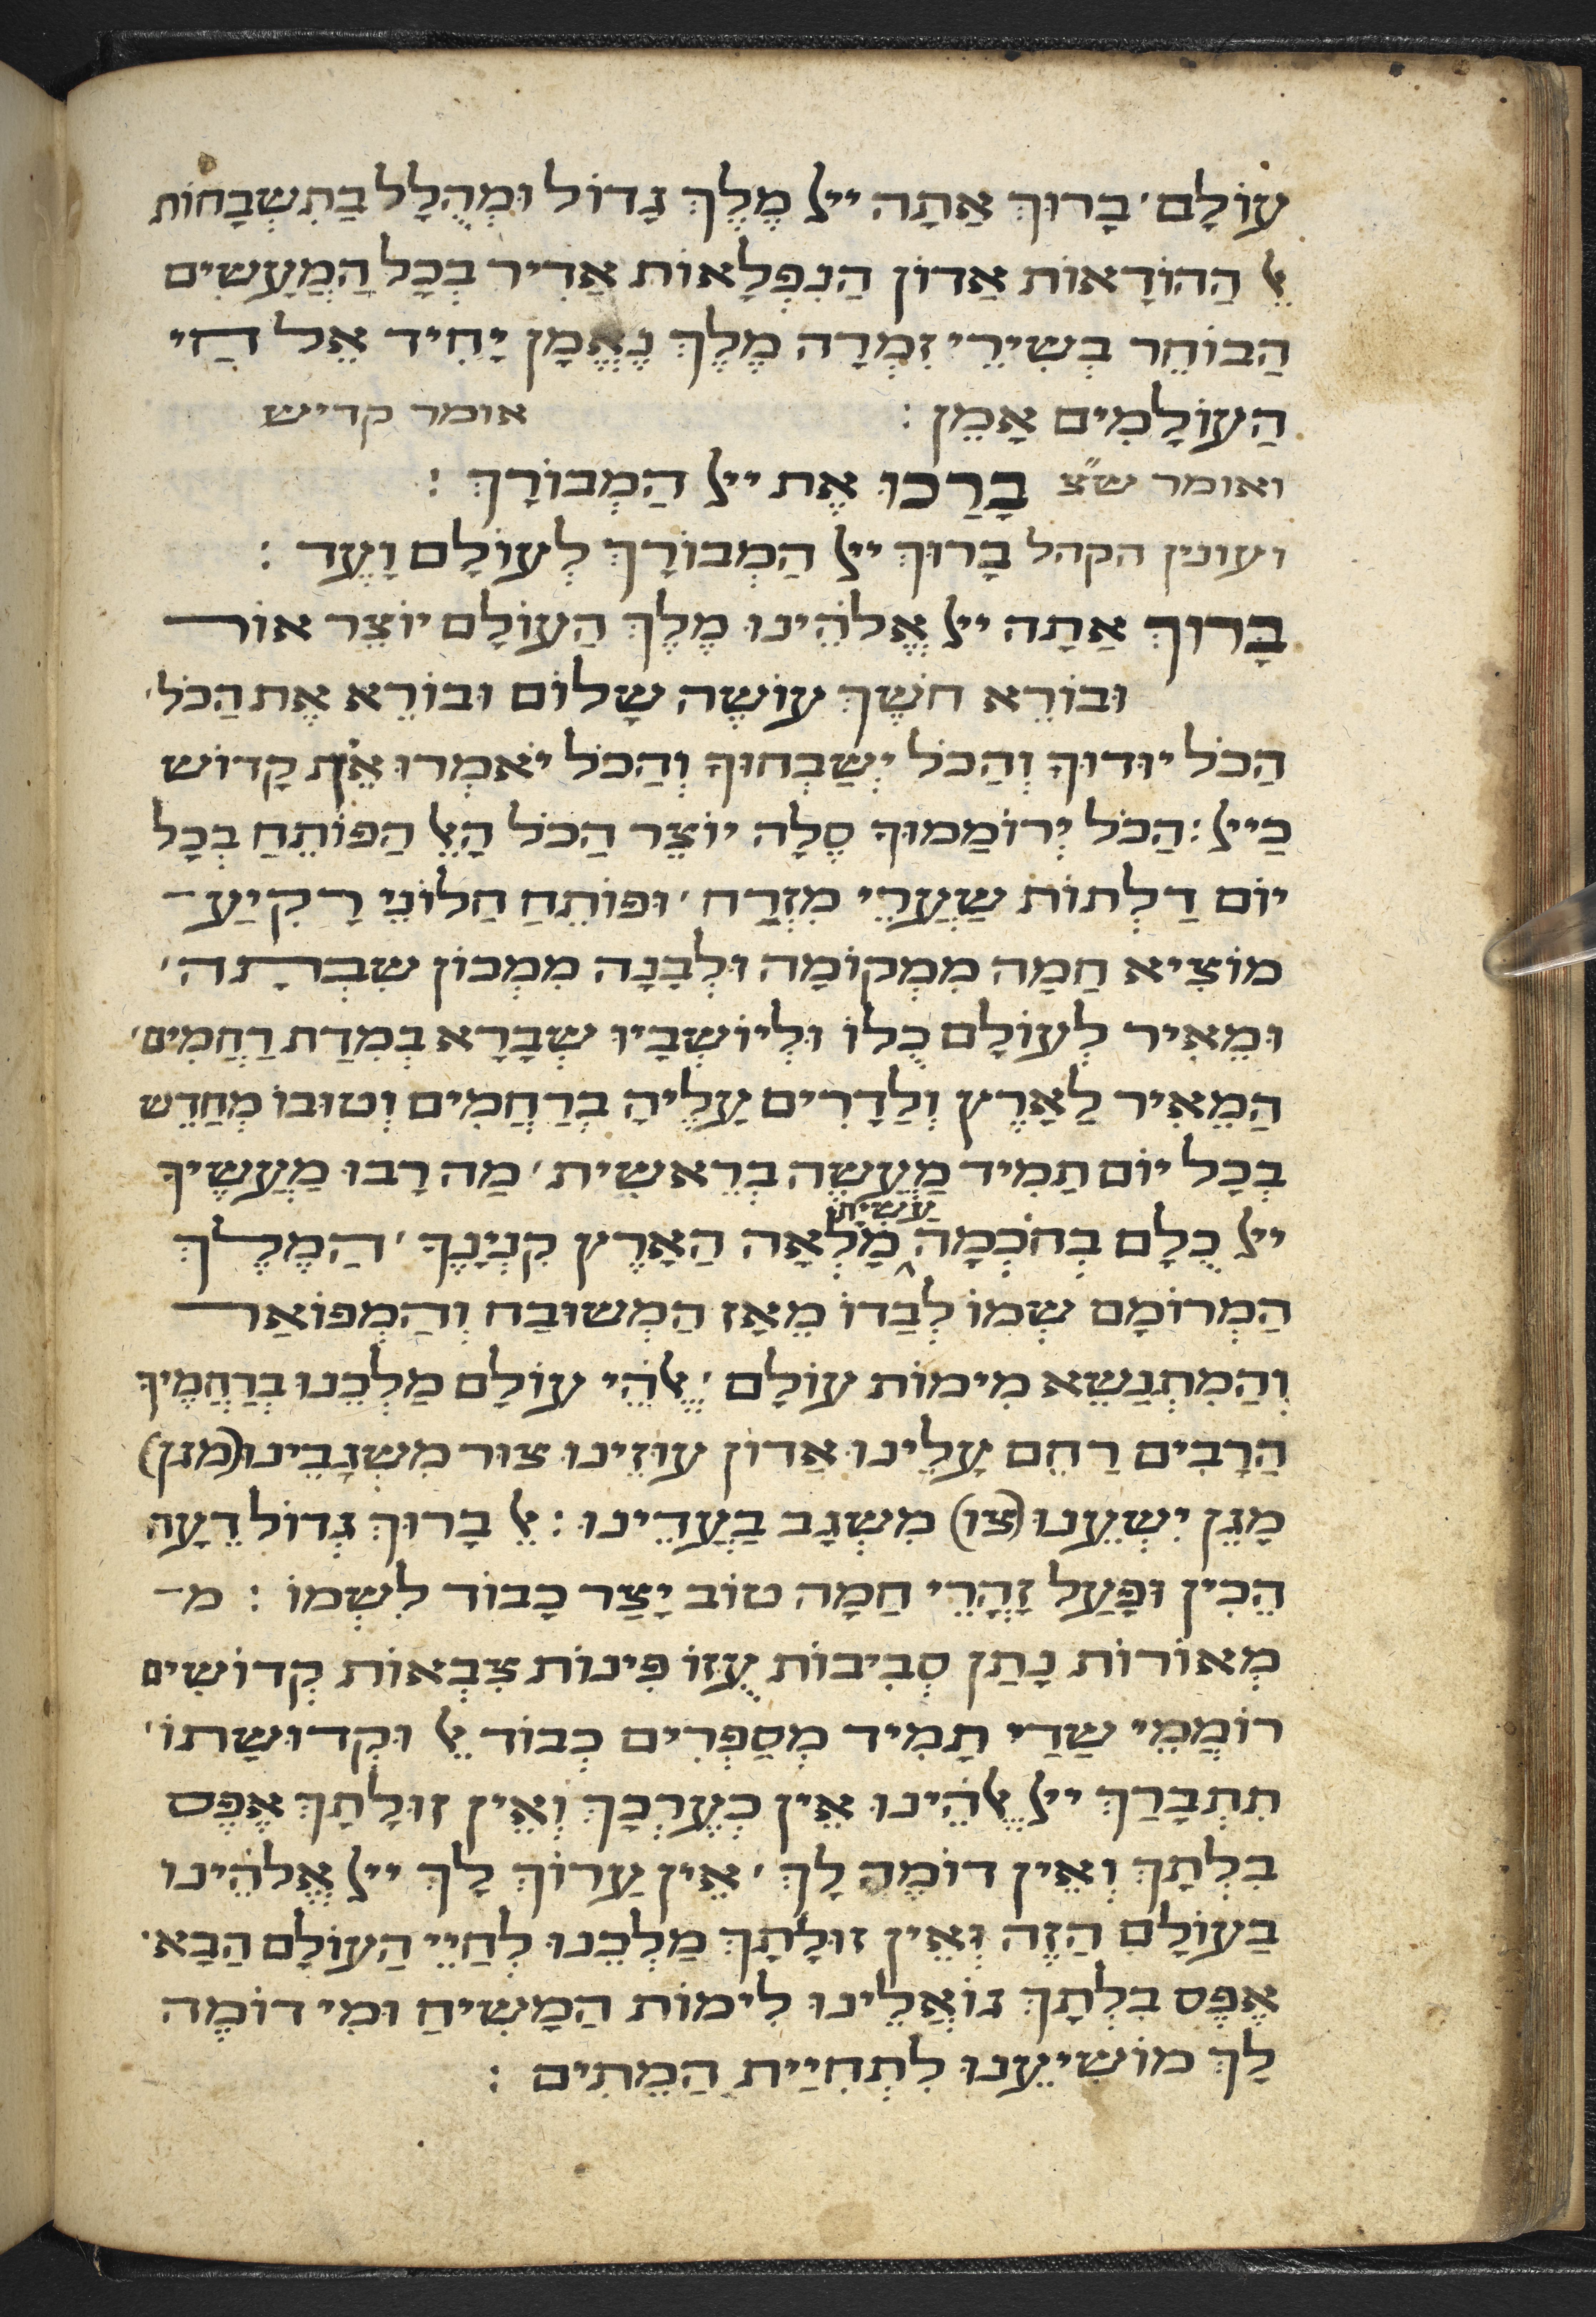 עוֹלָם׳ בָרוּךְ אַתָה ייל מֶלֶךְ גָדוֹל וּמְהֻלָל בַתִשְבָחוֹת
ﭏֵ הַהוֹדָאוֹת אֲדוֹן הַנִפְלָאוֹת אַדִיר בְכָל הַמַעֲשִים
הַבוֹחֵר בְשִירֵי זִמְרָה מֶלֶךְ נֶאֱמָן יָחִיד אֵל חַי
הַעוֹלָמִים אָמֵן : אומר קדיש
ואומר ש״צ בָרַכוּ אֶת ייל הַמְבוֹרָךְ :
ועונין הקהל בָרוּךְ ייל הַמְבוֹרָךְ לְעוֹלָם וָעֶד :
בָרוּךְ אַתָה ייל אֱלֹהֵינוּ מֶלֶךְ הַעוֹלָם יוֹצֵר אוֹר
וּבוֹרֵא חֹשֶךְ עוֹשֶה שָלוֹם וּבוֹרֵא אֶת הַכֹל׳
הַכֹל יוֹדוּךָ וְהַכֹל יְשַבְחוּךָ וְהַכֹל יֹאמְרוּ אֵין קָדוֹש
כַייל : הַכֹל יְרוֹמַמוּךָ סֶלָה יוֹצֵר הַכֹל הָﭏֵ הַפוֹתֵחַ בְכָל
יוֹם דַלְתוֹת שַעֲרֵי מִזְרַח׳ וּפוֹתֵחַ חַלוֹנֵי רָקִיעַ
מוֹצִיא חַמָה מִמְקוֹמָה וּלְבָנָה מִמְכוֹן שִבְתָהּ׳
וּמֵאִיר לְעוֹלָם כֻלוֹ וּלְיוֹשְבָיו שְבָרָא בְמִדַת רַחֲמִים׳
הַמֵאִיר לַאָרֶץ וְלַדָרִים עָלֶיהָ בְרַחֲמִים וְטוּבוֹ מְחַדֵש
בְכָל יוֹם תָמִיד מַעֲשֵה בְרֵאשִית׳ מַה רָבוּ מַעֲשֶיךָ
ייל כֻלָם בְחֹכְמָה עָשִיתָ מָלְאָה הַאָרֶץ קִנְיָנֶךָ׳ הַמֶלֶךְ
הַמְרוֹמָם שְמוֹ לְבַדוֹ מֵאָז הַמְשוּבַח וְהַמְפוֹאַר
וְהַמִתְנַשֵא מִימוֹת עוֹלָם׳ ﭏֱהֵי עוֹלָם מַלְכֵנוּ בְרַחֲמֶיךָ
הַרָבִים רַחֵם עָלֵינוּ אֲדוֹן עוּזֵינוּ צוּר מִשְגָבֵינוּ (מגן)
מָגֵן יִשְעֵנוּ (צו) מִשְגָב בַעֲדֵינוּ : ﭏֵ בָרוּךְ גְדוֹל דֵעָה
הֵכִין וּפָעַל זָהֳרֵי חַמָה טוֹב יָצַר כָבוֹד לִשְמוֹ : מ
מְאוֹרוֹת נָתַן סְבִיבוֹת עֻזוֹ פִינוֹת צִבְאוֹת קְדוֹשִים
רוֹמֲמֵי שַדַי תָמִיד מְסַפְרִים כְבוֹד ﭏֵ וּקְדוּשָתוֹ׳
תִתְבָרַךְ ייל ﭏֱהֵינוּ אֵין כְעֶרְכָךְ וְאֵין זוּלָתָךְ אֶפֶס
בִלְתָךְ וְאֵין דוֹמֶה לָךְ׳ אֵין עֲרוֹךְ לָךְ ייל אֱלֹהֵינוּ
בַעוֹלָם הַזֶה וְאֵין זוּלָתָךְ מַלְכֵנוּ לְחַיֵי הַעוֹלָם הַבָא׳
אֶפֶס בִלְתָךְ גוֹאֲלֵינוּ לִימוֹת הַמָשִיחַ וּמִי דוֹמֶה
לָךְ מוֹשִיעֵנוּ לִתְחִיַית הַמֵתִים :